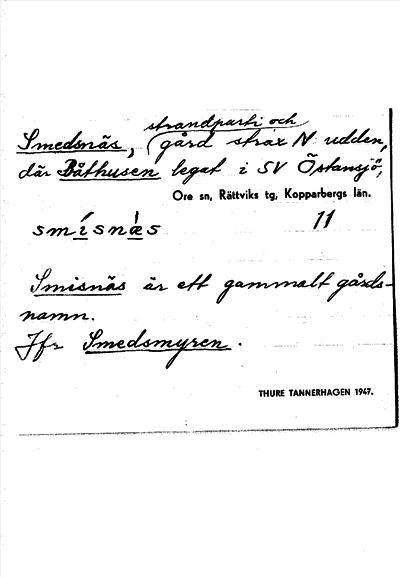 strandparti och
Smedsnäs, (gård strax N udden,
där Båthusen legat i SV Östansjö,
Ore sn, Rättviks tg, Kopparbergs län.
smísnæ̀s 11
Smisnäs är ett gammalt gårds-
namn.
Jfr Smedsmyren.
THURE TANNERHAGEN 1947.